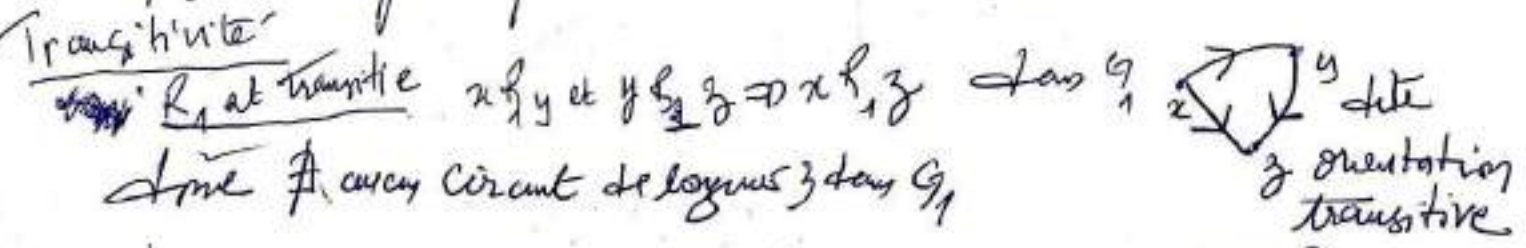 Transitivité
R₁ est transitive x R₁ y et y R₁ z ⇒ x R₁ z dans G₁ x y z dite
orientation
transitive
donc ∄ aucun circuit de longueur 3 dans G₁